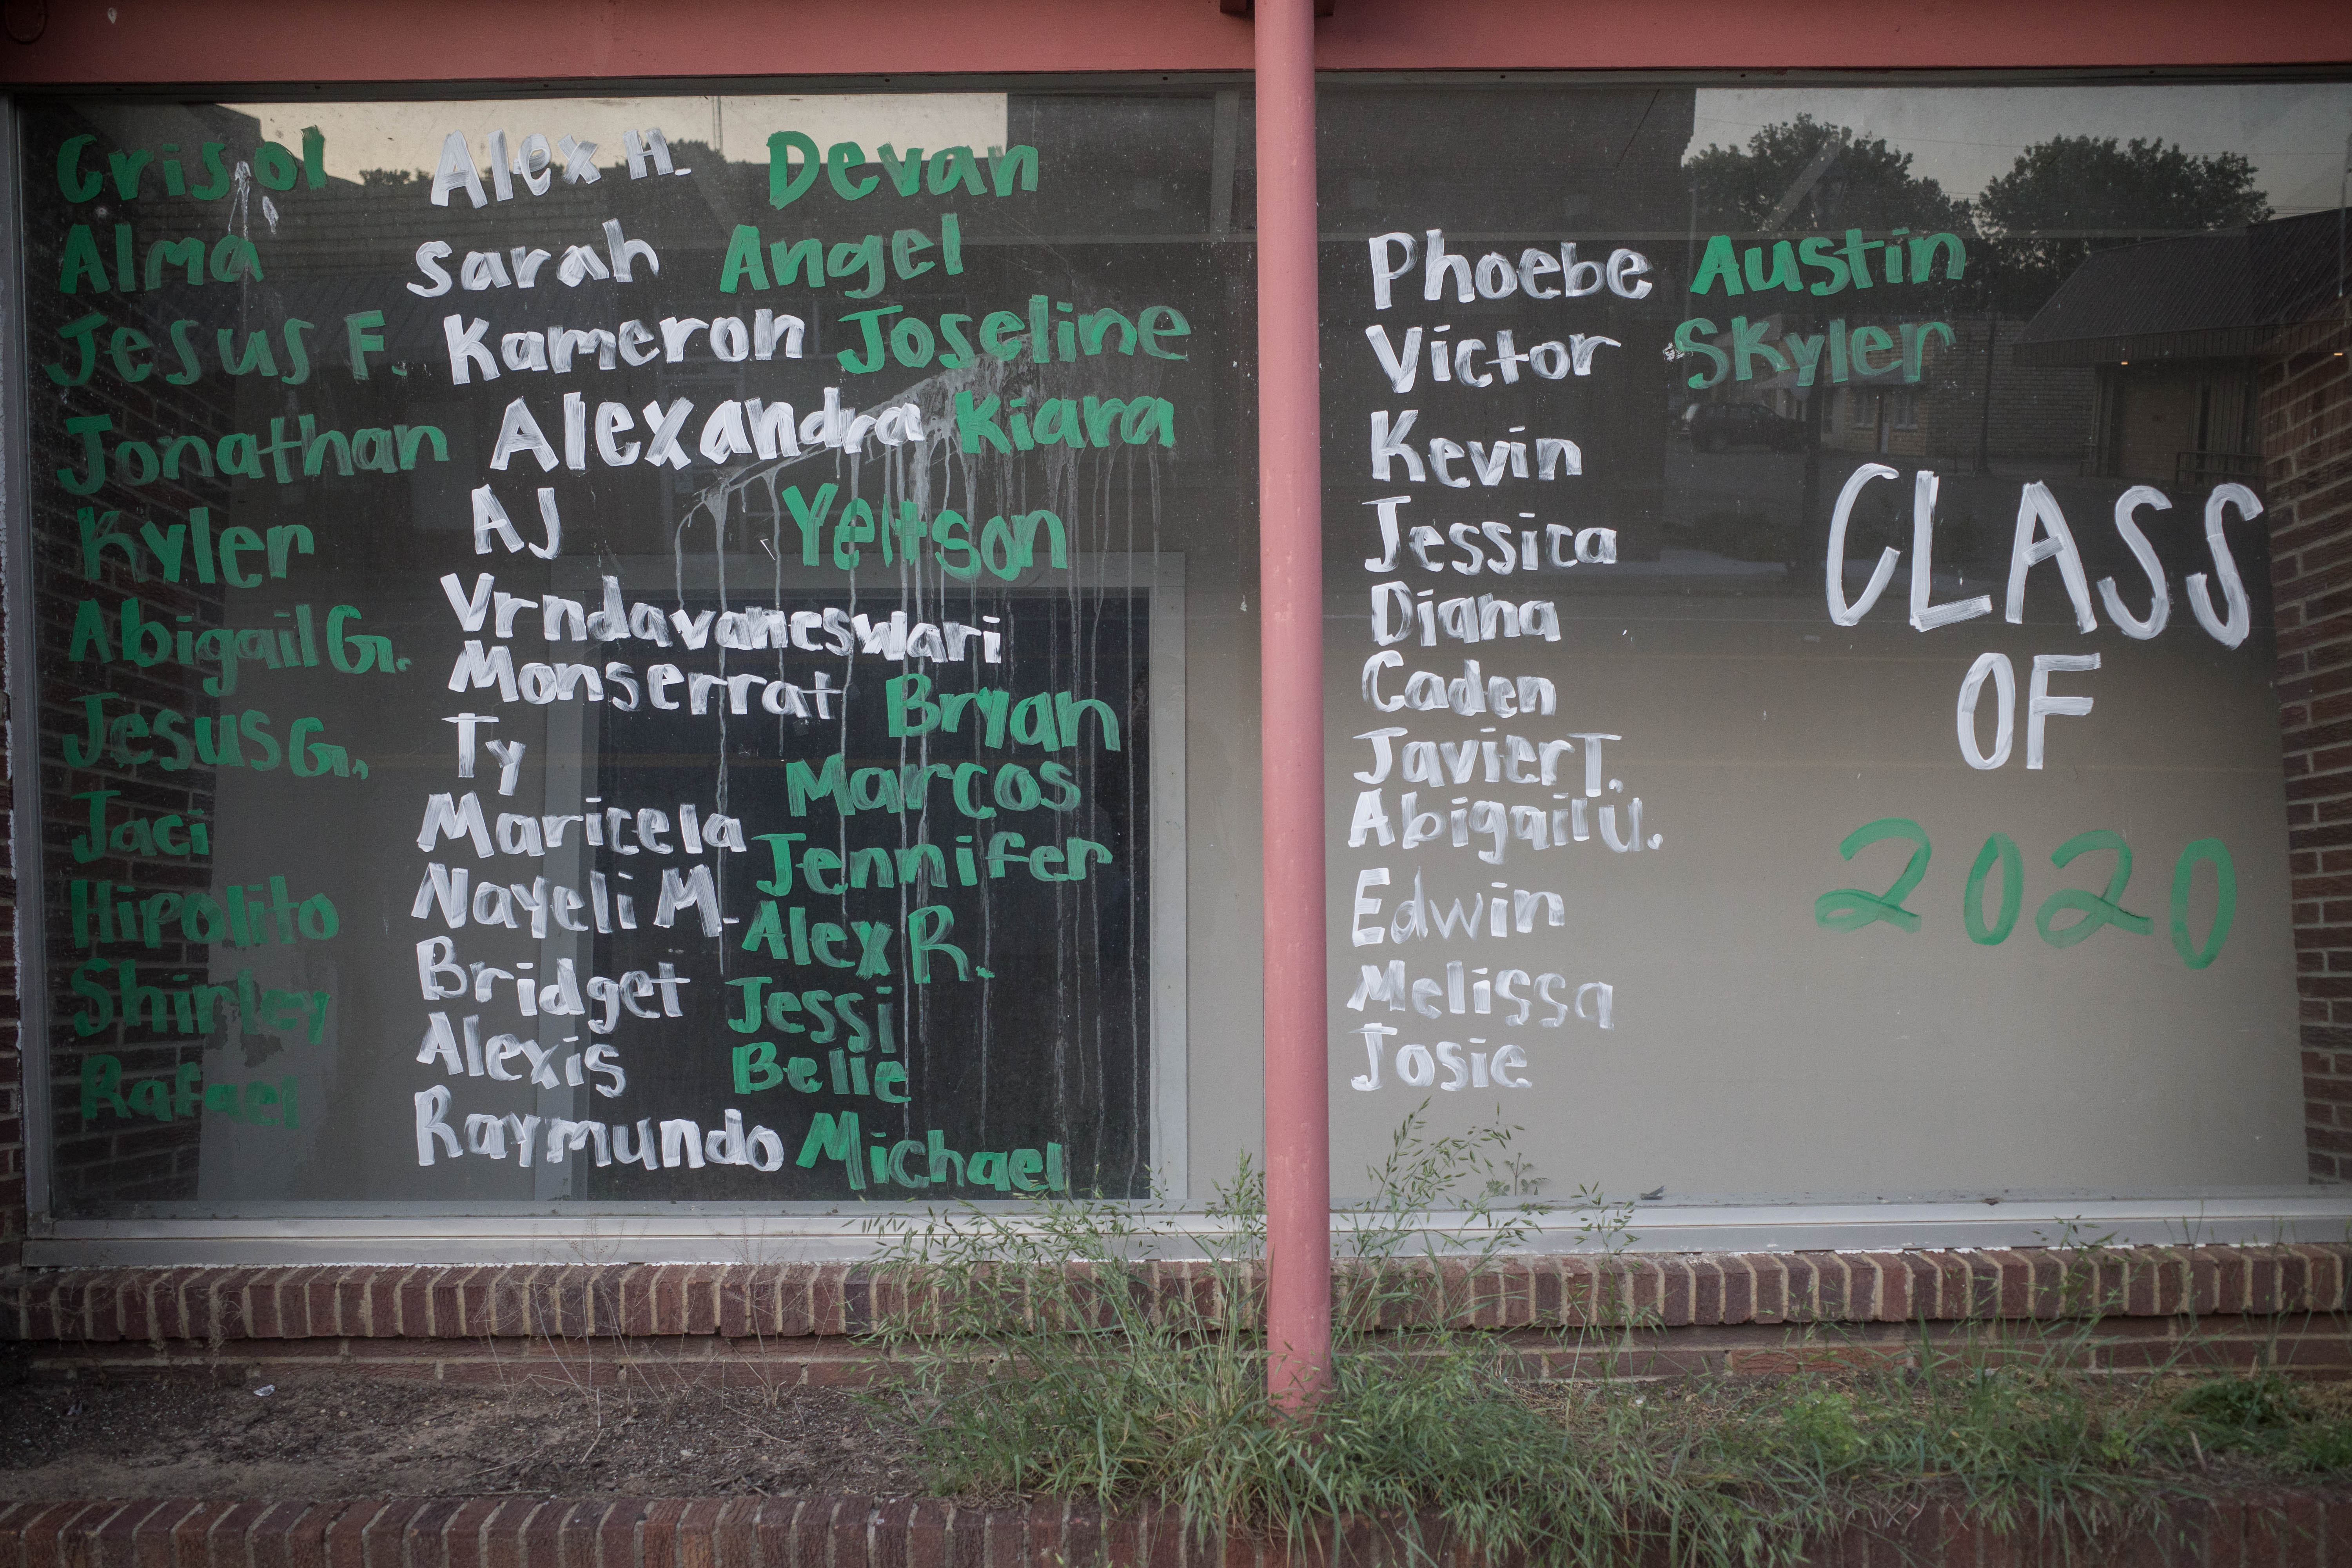 Crisol
Alma
Jesus F.
Jonathan
Kyler
Abigail G.
Jesus G.
Jaci
Hipolito
Shirley
Rafael
Alex H.
Sarah
Kameron
Alexandra
AJ
Vrndavaneswari
Monserrat
Ty
Maricela
Nayeli M.
Bridget
Alexis
Raymundo
Devan
Angel
Joseline
Kiara
Yeltson
Bryan
Marcos
Jennifer
Alex R.
Jessi
Belle
Michael
Phoebe
Victor
Kevin
Jessica
Diana
Caden
Javier T.
Abigail U.
Edwin
Melissa
Josie
Austin
Skyler
CLASS
OF
2020